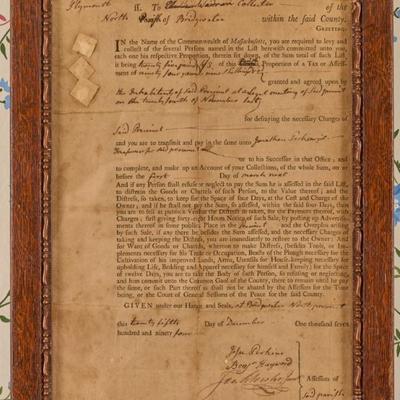 Plymouth II. To Collector of the
North Parish of Bridgwater within the said County,
GREETING.
IN the Name of the Commonwealth of Massachusetts, you are required to levy and
collect of the several Persons named in the List herewith committed unto you,
each one his respective Proportion, therein set down, of the Sum total of such List
it being of this Proportion of a Tax or Assess-
ment of ninety four
granted and agreed upon
by the Inhabitants of said Precinct at a legal meeting of said precinct
on the of November last,
for defraying the necessary Charges of
Said Precinct
and you are to transmit and pay in the same unto Jonathan
Treasurer
to his Successor in that Office; and
to complete, and make up an Account of your Collections, of the whole Sum, on or
before the first Day of march next
And if any Person shall refuse or neglect to pay the Sum he is assessed in the said List,
to distrein the Goods or Chattels of such Person, to the Value thereof; and the
Distress, so taken, to keep for the Space of four Days, at the Cost and Charge of the
Owner; and if he shall not pay the Sum, so assessed, within the said four Days, then
you are to sell at publick Vendue the Distress so taken, for the Payment thereof, with
Charges; first giving forty-eight Hours Notice of such Sale, by posting up Advertise-
ments thereof in some public Place in the Precinct and the Overplus arising
by such Sale, if any there be, besides the Sum assessed, and the necessary Charges of
taking and keeping the Distress, you are immediately to restore to the Owner: And
for Want of Goods or Chattels, whereon to make Distress, (besides Tools, or Im-
plements necessary for his Trade or Occupation, Beasts of the Plough necessary for the
Cultivation of his improved Lands, Arms, Utensils for House-keeping necessary for
upholding Life, Bedding and Apparel necessary for himself and Family;) for the Space
of twelve Days, you are to take the Body of such Person, so refusing or neglecting,
and him commit unto the Common Goal of the County, there to remain until he pay
the same, or such Part thereof as shall not be abated by the Assessors for the Time
being, or the Court of General Sessions of the Peace for the said County.
GIVEN under our Hands and Seals, at Bridgwater North precinct
this twenty fifth Day of December One thousand seven
hundred and ninety four
Jesse Perkins
Benja Hayward
Assessors of
said precinct